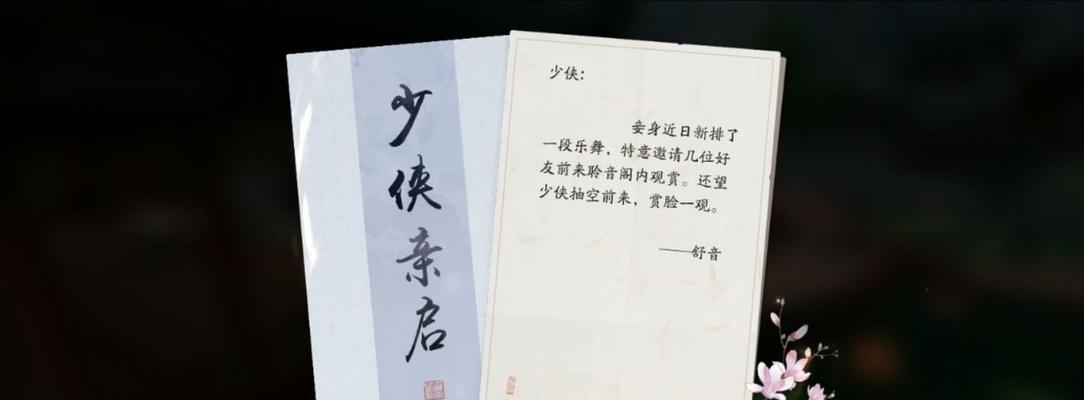 少侠亲启
少侠：
妾身近日新排了
一段乐舞，特意邀请几位好
友前来聆音阁内观赏。还望
少侠抽空前来，赏脸一观。
——舒音